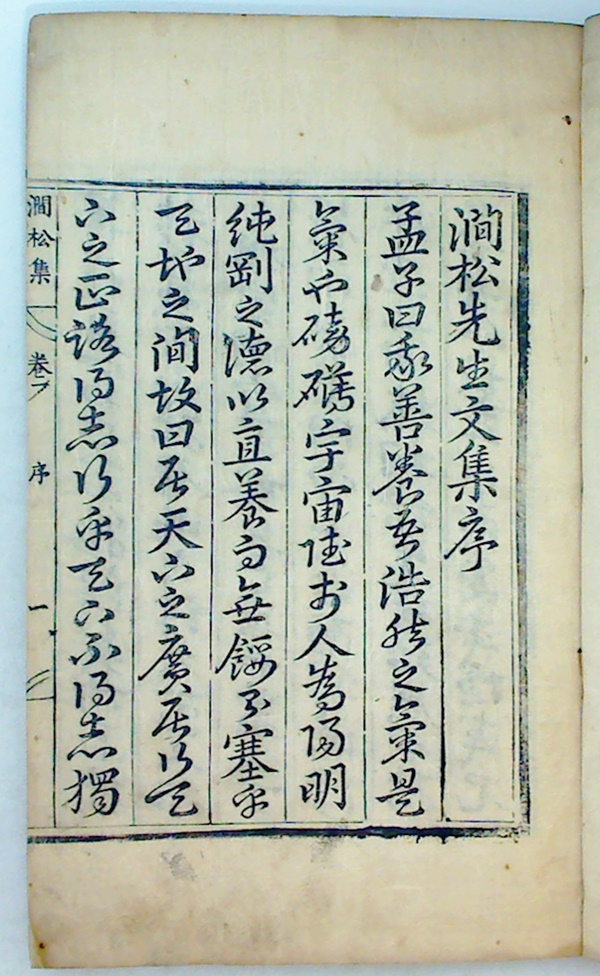 澗松先生文集序
孟子曰我善養吾浩然之氣是
氣也磅礴宇宙於人為陽明
純剛之德以直養而無餒則塞乎
天地之間故曰居天下之廣居行天
下之正路得志行乎天下不得志獨
澗松集 卷之 序 一